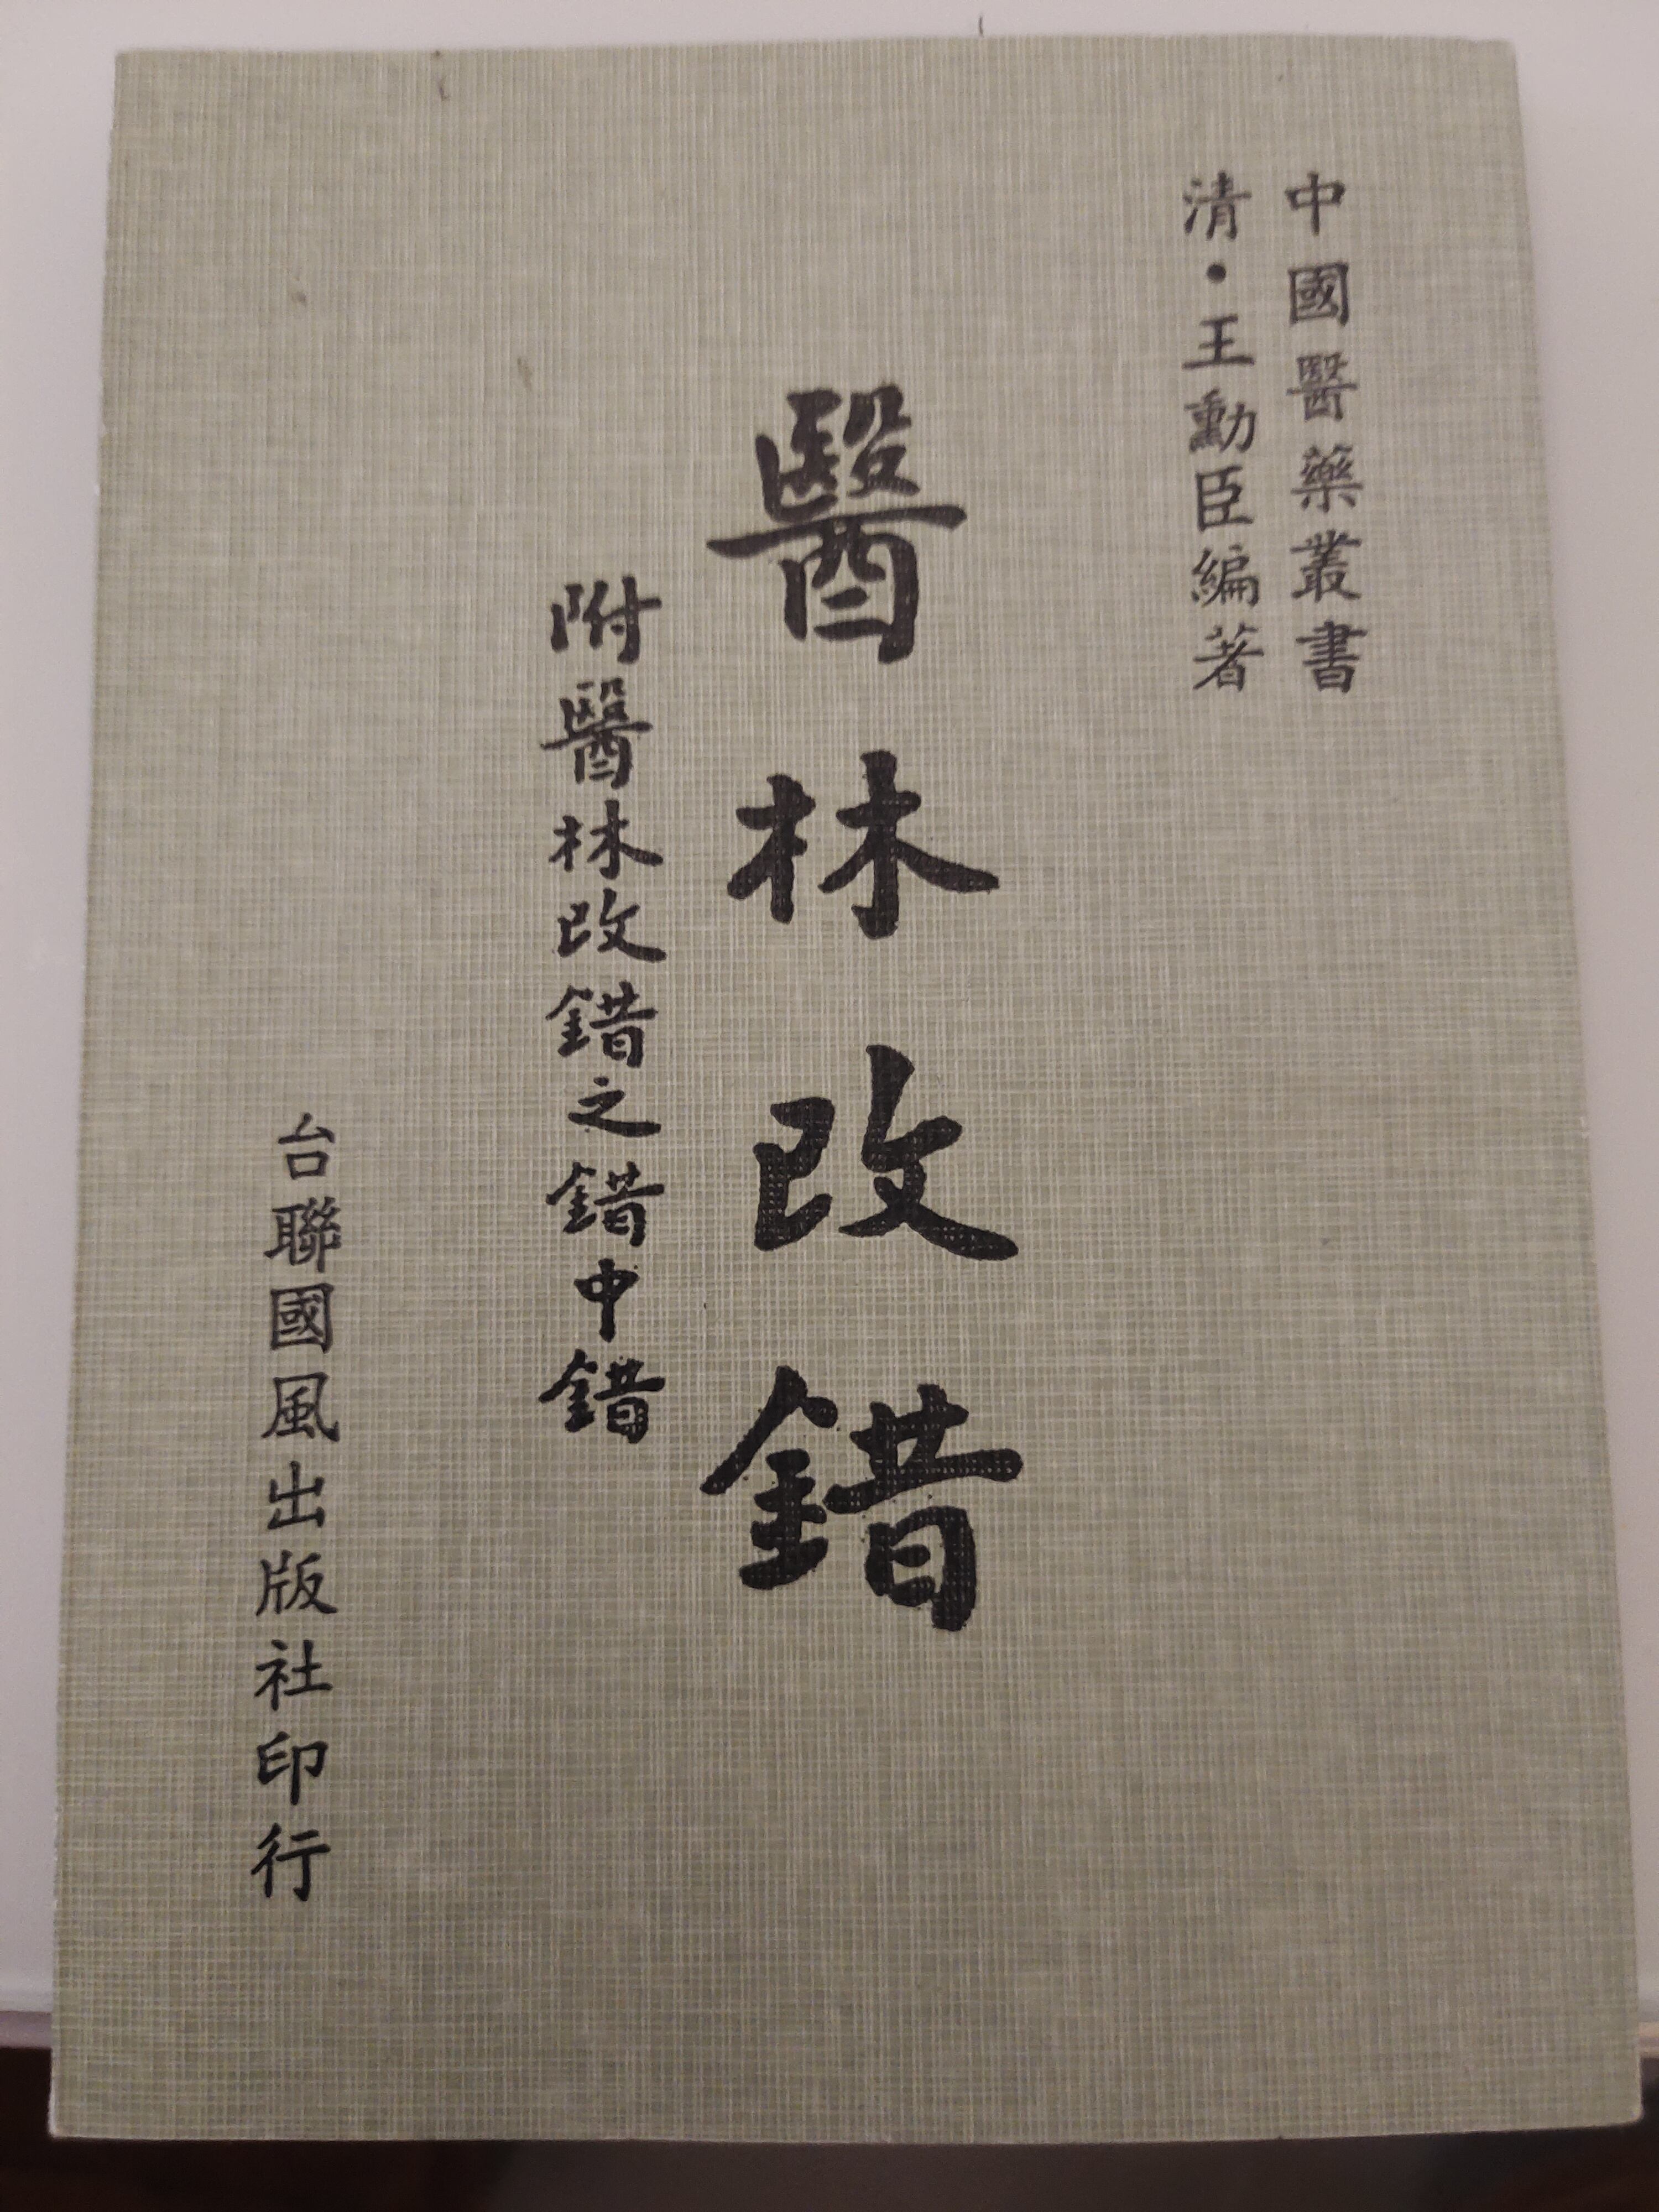 中國醫藥叢書
清·王勳臣編著
醫林改錯
附醫林改錯之錯中錯
台聯國風出版社印行